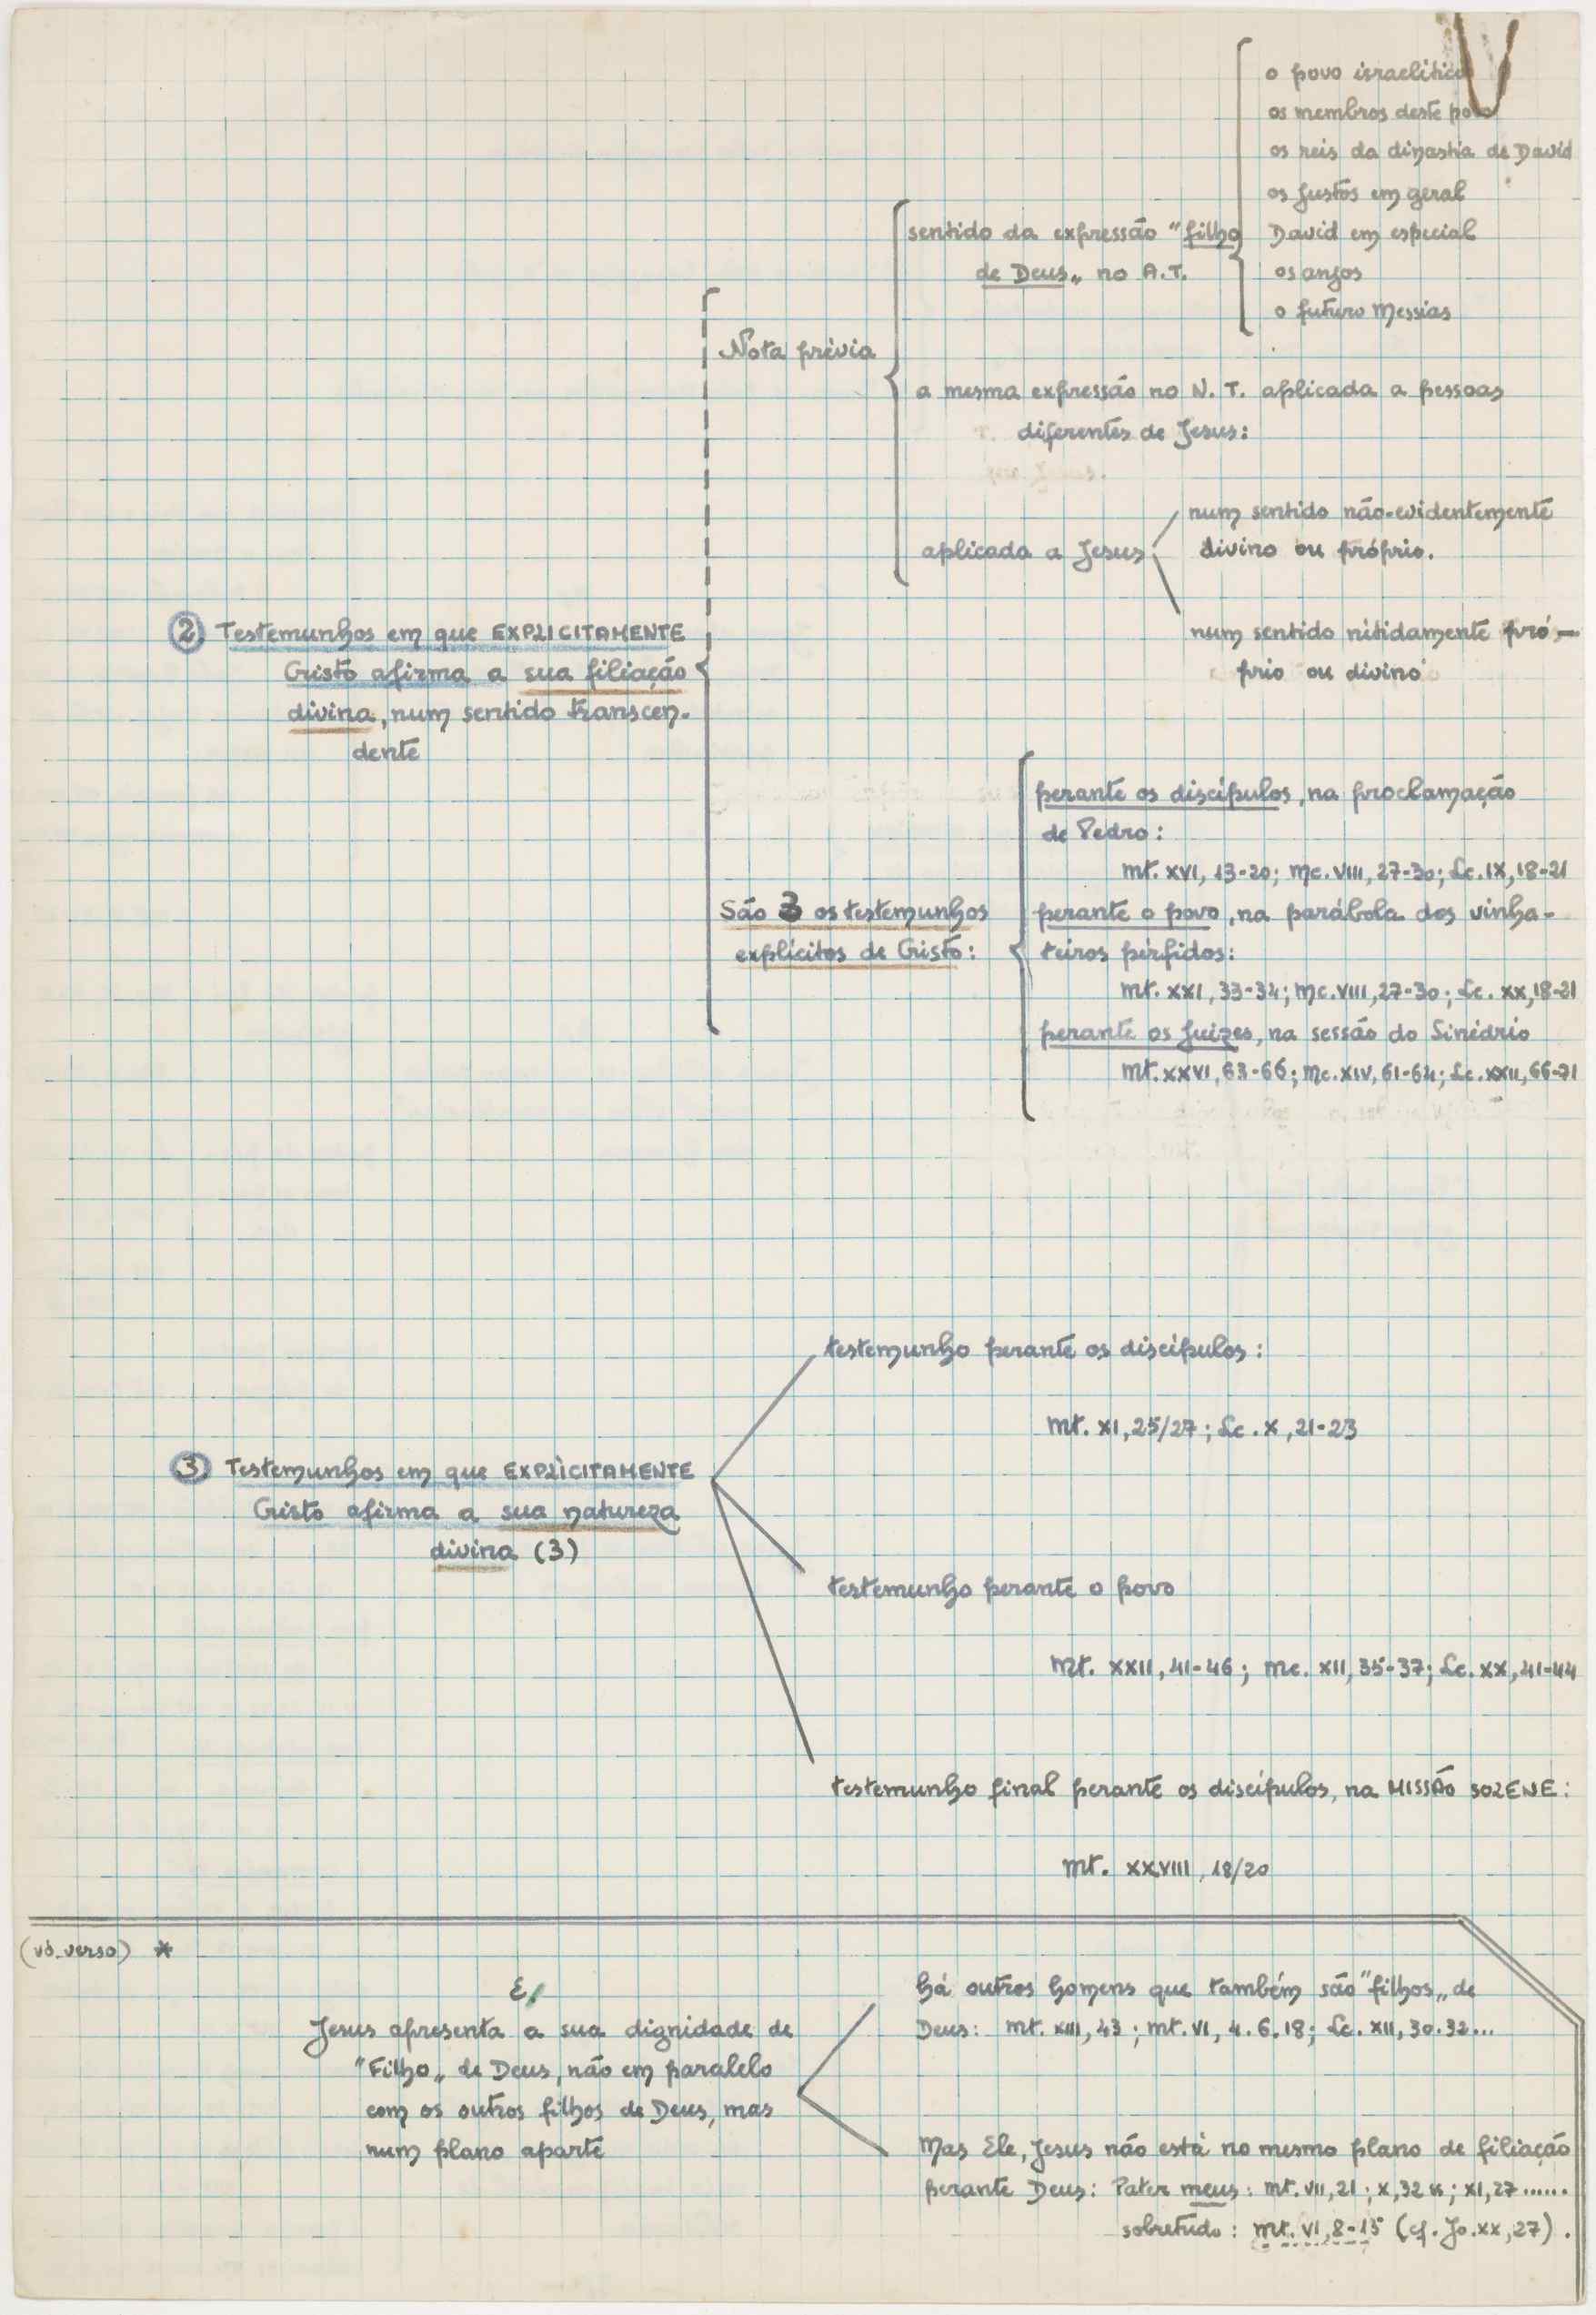 V
o povo israelítico
os membros deste povo
os reis da dinastia de David
os justos em geral
David em especial
os anjos
o futuro Messias
sentido da expressão "filho
de Deus„ no A.T.
Nota prévia
a mesma expressão no N. T. aplicada a pessoas
diferentes de Jesus:
aplicada a Jesus
num sentido não-evidentemente
divino ou próprio.
num sentido nitidamente pró-
prio ou divino
② Testemunhos em que EXPLICITAMENTE
Cristo afirma a sua filiação
divina, num sentido transcen-
dente
São 3 os testemunhos
explícitos de Cristo:
perante os discípulos, na proclamação
de Pedro:
Mt. XVI, 13-20; Mc. VIII, 27-30; Lc. IX, 18-21
perante o povo, na parábola dos vinha-
teiros pérfidos:
Mt. XXI, 33-34; Mc. VIII, 27-30; Lc. XX, 18-21
perante os Juizes, na sessão do Sinédrio
Mt. XXVI, 63-66; Mc. XIV, 61-64; Lc. XXII, 66-71
③ Testemunhos em que EXPLÌCITAMENTE
Cristo afirma a sua natureza
divina (3)
testemunho perante os discípulos:
Mt. XI, 25/27; Lc. X, 21-23
testemunho perante o povo
Mt. XXII, 41-46; Mc. XII, 35-37; Lc. XX, 41-44
testemunho final perante os discípulos, na MISSÃO SOLENE:
Mt. XXVIII, 18/20
(vd. verso) *
E/
Jesus apresenta a sua dignidade de
"Filho„ de Deus, não em paralelo
com os outros filhos de Deus, mas
num plano aparte
há outros homens que também são "filhos„ de
Deus: Mt. XIII, 43; Mt. VI, 4. 6. 18; Lc. XII, 30. 32...
Mas Ele, Jesus não está no mesmo plano de filiação
perante Deus: Pater meus: Mt. VII, 21; X, 32 ss; XI, 27......
sobretudo: Mt. VI, 8-15 (cf. Jo. XX, 27).